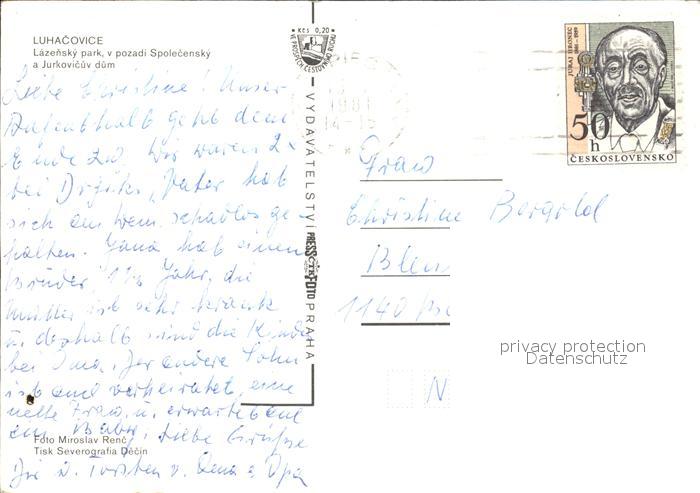 LUHAČOVICE
Lázeňský park, v pozadí Společenský
a Jurkovičův dům
Liebe Christine! Unser
Aufenthalt geht dem
Ende zu. Wir waren 2x
bei Vater hat
sich am schadlos ge-
halten. Jana hat einen
Bruder, 1½ Jahr, die
Mutter ist sehr krank
u. deshalb sind die Kinder
bei Oma. Der andere Sohn
ist auch verheiratet, eine
nette Frau u. erwartet auch
ein Baby. Liebe Grüße
Dir u. Torsten v. Oma u. Opa
Foto Miroslav Renč
Tisk Severografia Děčín
Kčs 0,20
VE PROSPĚCH CESTOVNÍHO RUCHU
VYDAVATELSTVÍ PRESSFOTO PRAHA
1981
JURAJ HRONEC
50 h
ČESKOSLOVENSKO
Frau
Christine Bergold
1140
privacy protection
Datenschutz